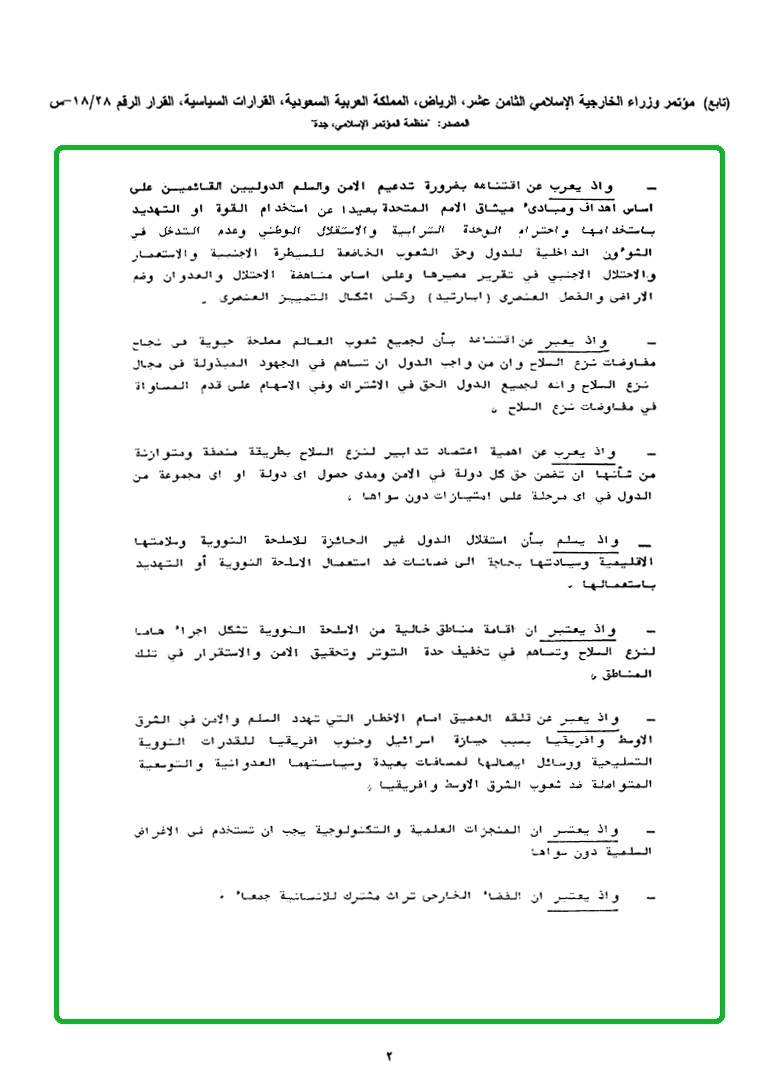 (تابع) مؤتمر وزراء الخارجية الإسلامي الثامن عشر، الرياض، المملكة العربية السعودية، القرارات السياسية، القرار الرقم ١٨/٢٨-س
المصدر: "منظمة المؤتمر الإسلامي، جدة"
– واذ يعرب عن اقتناعه بضرورة تدعيم الامن والسلم الدوليين القائمين على
اساس اهداف ومبادىء ميثاق الامم المتحدة بعيدا عن استخدام القوة او التهديد
باستخدامها واحترام الوحدة الترابية والاستقلال الوطني وعدم التدخل في
الشؤون الداخلية للدول وحق الشعوب الخاضعة للسيطرة الاجنبية والاستعمار
والاحتلال الاجنبي في تقرير مصيرها وعلى اساس مناهضة الاحتلال والعدوان وضم
الاراضي والفصل العنصرى (ابارتيد) وكل اشكال التمييز العنصرى .
– واذ يعبر عن اقتناعه بأن لجميع شعوب العالم مصلحة حيوية فى نجاح
مفاوضات نزع السلاح وان من واجب الدول ان تساهم في الجهود المبذولة فى مجال
نزع السلاح وانه لجميع الدول الحق في الاشتراك وفي الاسهام على قدم المساواة
في مفاوضات نزع السلاح .
– واذ يعرب عن اهمية اعتماد تدابير لنزع السلاح بطريقة منصفة ومتوازنة
من شأنها ان تضمن حق كل دولة في الامن ومدى حصول اى دولة او اى مجموعة من
الدول في اى مرحلة على امتيازات دون سواها .
– واذ يسلم بأن استقلال الدول غير الحائزة للاسلحة النووية وسلامتها
الاقليمية وسيادتها بحاجة الى ضمانات ضد استعمال الاسلحة النووية أو التهديد
باستعمالها .
– واذ يعتبر ان اقامة مناطق خالية من الاسلحة النووية تشكل اجراء هاما
لنزع السلاح وتساهم في تخفيف حدة التوتر وتحقيق الامن والاستقرار في تلك
المناطق .
– واذ يعبر عن قلقه العميق امام الاخطار التي تهدد السلم والامن في الشرق
الاوسط وافريقيا بسبب حيازة اسرائيل وجنوب افريقيا للقدرات النووية
التسليحية ووسائل ايصالها لمسافات بعيدة وسياستهما العدوانية والتوسعية
المتواصلة ضد شعوب الشرق الاوسط وافريقيا .
– واذ يعتبر ان المنجزات العلمية والتكنولوجية يجب ان تستخدم فى الاغراض
السلمية دون سواها
– واذ يعتبر ان الفضاء الخارجى تراث مشترك للانسانية جمعاء .
٢